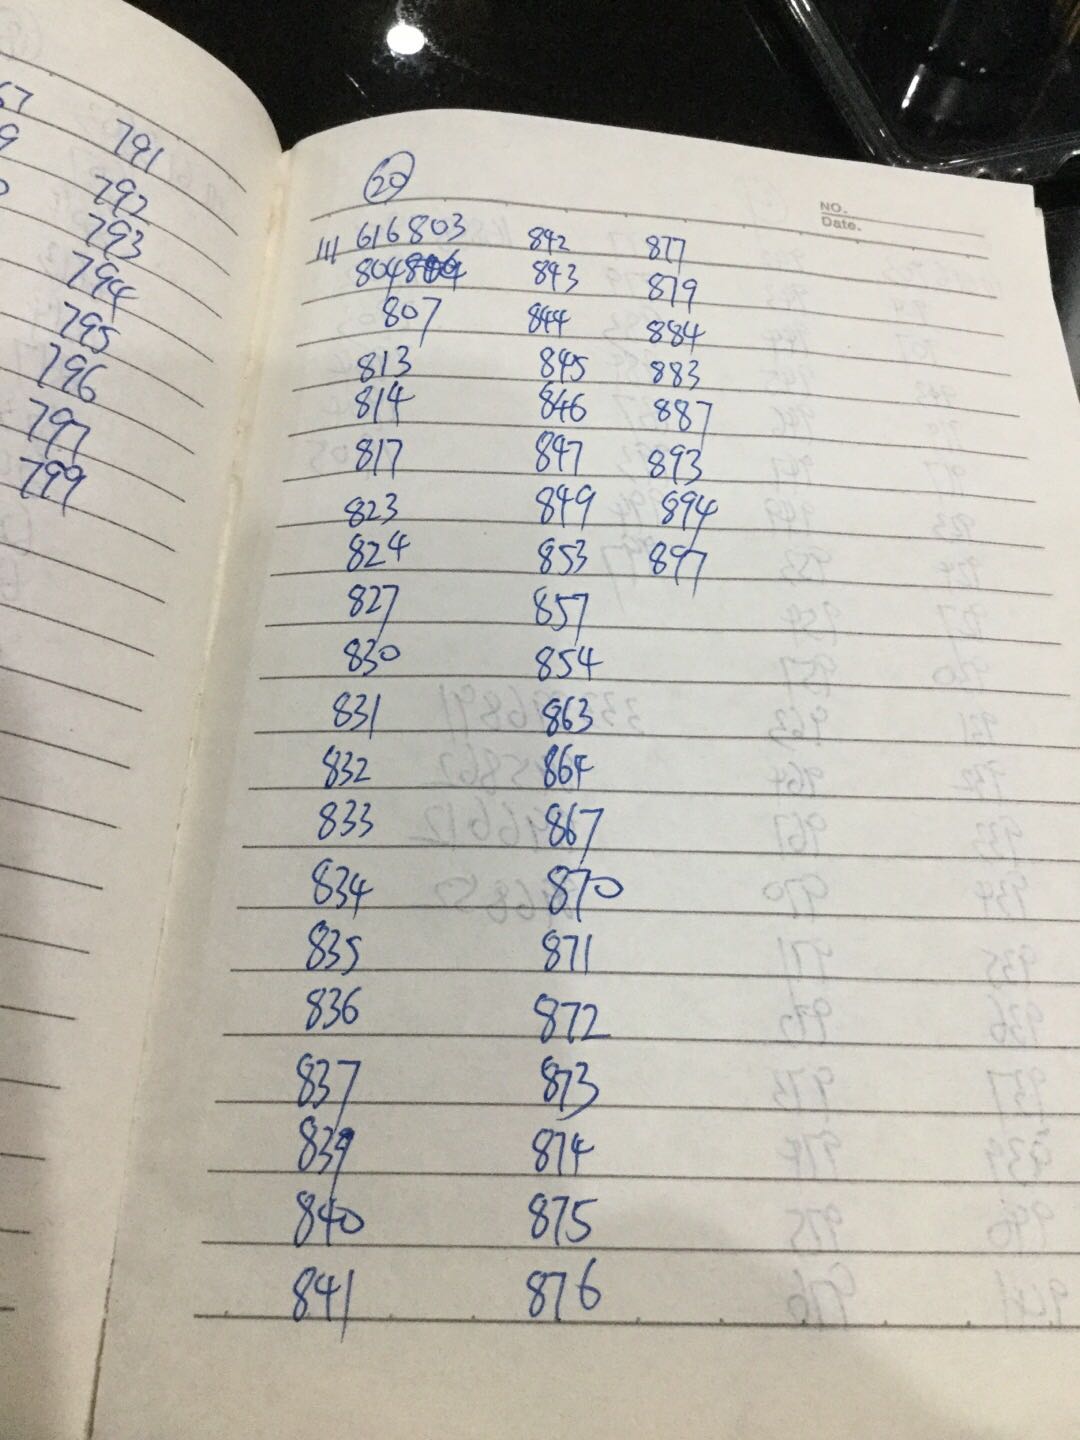 791
792
793
794
795
796
797
799
20
NO.
Date.
111 616803 842 877
804 843 879
807 844 884
813 845 883
814 846 887
817 847 893
823 849 894
824 853 897
827 857
830 854
831 863
832 864
833 867
834 870
835 871
836 872
837 873
839 874
840 875
841 876